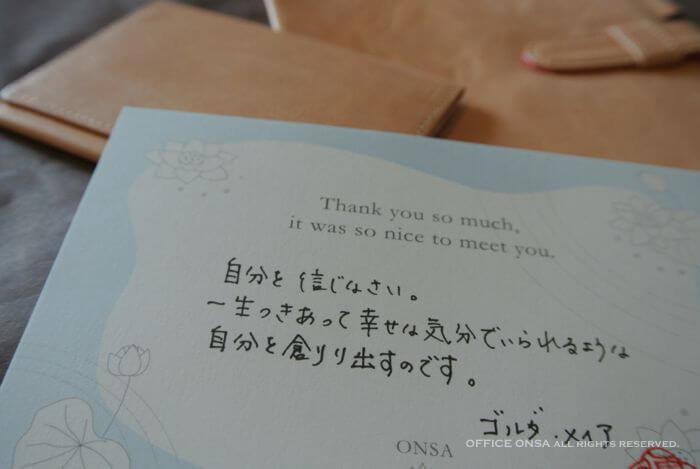 Thank you so much,
it was so nice to meet you.
自分を信じなさい。
一生つきあって幸せな気分でいられるような
自分を創り出すのです。
ゴルダ・メイア
ONSA
OFFICE ONSA ALL RIGHTS RESERVED.